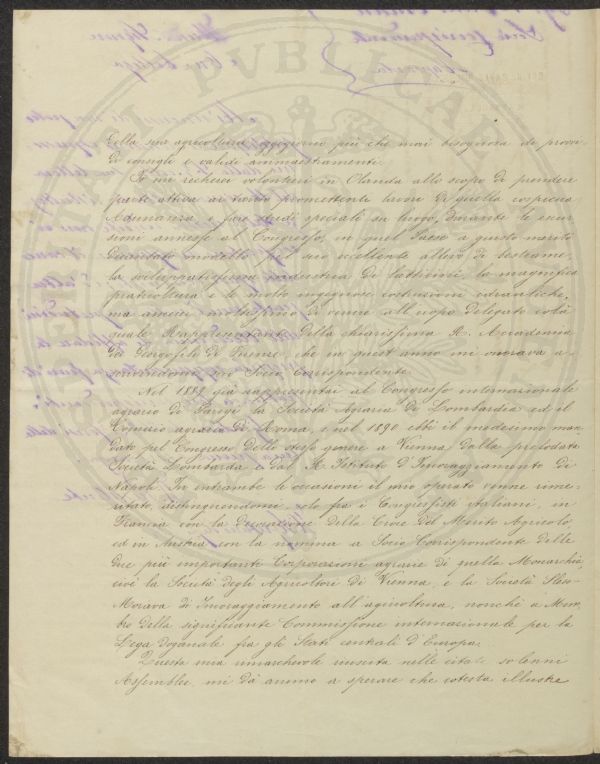 della sua agricoltura, oggigiorno più che mai bisognosa di provvi-
di consigli e validi ammaestramenti.
Io mi recherei volentieri in Olanda allo scopo di prendere
parte attiva ai lavori di quella cospicua
Adunanza, e fare studi speciali su luogo, durante le escur-
sioni annesse al Congresso, in quel Paese a giusto merito
diventato modello pel suo eccellente allevo di bestiame,
la sviluppatissima industria di latticini, la magnifica
praticoltura e le molto ingegnose costruzioni idrauliche,
ma amerei moltissimo di venire all'uopo delegato colà
quale Rappresentante della chiarissima R. Accademia
dei Georgofili di Firenze, che in quest'anno mi onorava a-
scrivendomi suo Socio corrispondente.
Nel 1889 già rappresentai al Congresso internazionale
agrario di Parigi la Società Agraria di Lombardia ed il
Comizio agrario di Roma, e nel 1890 ebbi il medesimo man-
dato pel Congresso dello stesso genere a Vienna dalla prelodata
Società Lombarda e dal R. Istituto d'Incoraggiamento di
Napoli. In entrambe le occasioni il mio operato venne rime-
ritato, distinguendomi, solo fra i Congressisti italiani, in
Francia con la decorazione della Croce del Merito Agricolo,
ed in Austria con la nomina a Socio Corrispondente delle
due più importanti Corporazioni agrarie di quella Monarchia,
cioè la Società degli Agricoltori di Vienna, e la Società Slavo-
Morava di Incoraggiamento all'agricoltura, nonchè a Mem-
bro della significante Commissione internazionale per la
Lega doganale fra gli Stati centrali d'Europa.
Questa mia rimarchevole riuscita nelle citate solenni
Assemblee, mi dà animo a sperare che cotesta illustre